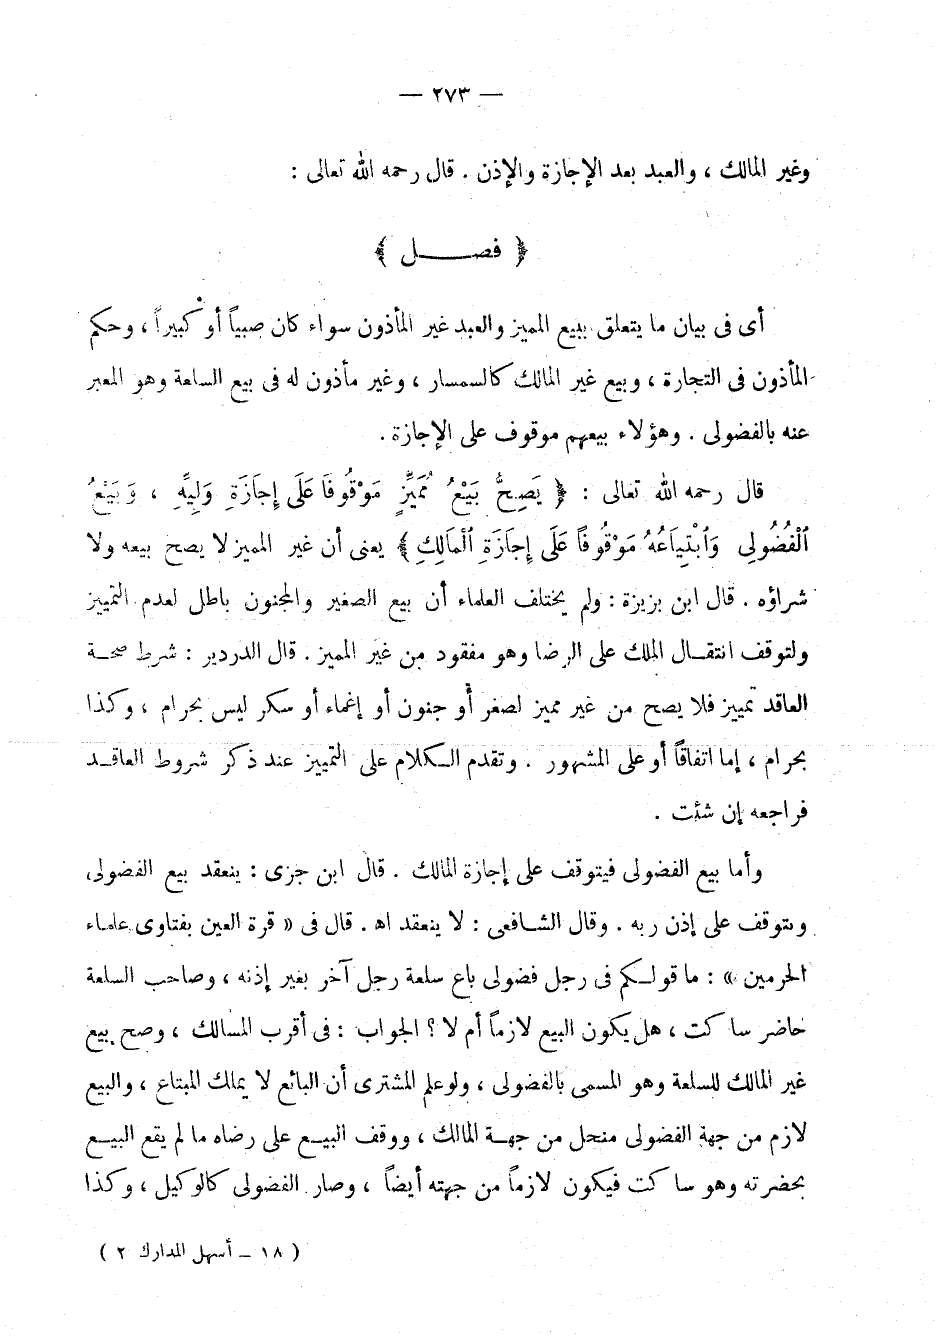 — ٢٧٣ —
وغير المالك ، والعبد بعد الإجازة والإذن . قال رحمه الله تعالى :
﴿ فصــــل ﴾
أى فى بيان ما يتعلق ببيع المميز والعبد غير المأذون سواء كان صبياً أو كبيراً ، وحكم
المأذون فى التجارة ، وبيع غير المالك كالسمسار ، وغير مأذون له فى بيع السلعة وهو المعبر
عنه بالفضولى . وهؤلاء بيعهم موقوف على الإجازة .
قال رحمه الله تعالى : ﴿ يَصِحُّ بَيْعُ مُمَيِّزٍ مَوْقُوفَا عَلَى إِجَازَةِ وَلِيِّهِ ، وَبَيْعُ
ٱلْفُضُولِى وَٱبْتِيَاعُهُ مَوْقُوفًا عَلَى إِجَازَةِ ٱلْمَالِكِ ﴾ يعنى أن غير المميز لا يصح بيعه ولا
شراؤه . قال ابن بزيزة : ولم يختلف العلماء أن بيع الصغير والمجنون باطل لعدم التمييز
ولتوقف انتقـال الملك على الرضا وهو مفقود من غير المميز . قال الدردير : شرط صحـة
العاقد تمييز فلا يصح من غير مميز لصغر أو جنون أو إغماء أو سكر ليس بحرام ، وكذا
بحرام ، إما اتفاقاً أو على المشهور . وتقدم الـكلام على التمييز عند ذكر شروط العاقـد
فراجعه إن شئت .
وأما بيع الفضولى فيتوقف على إجازة المالك . قال ابن جزى : ينعقد بيع الفضولى
ويتوقف على إذن ربه . وقال الشـافعى : لا ينعقد اه . قال فى « قرة العين بفتاوى علماء
الحرمين » : ما قولـكم فى رجل فضولى باع سلعة رجل آخر بغير إذنه ، وصاحب السلعة
حاضر ساكت ، هل يكون البيع لازماً أم لا ؟ الجواب : فى أقرب المسالك ، وصح بيع
غير المالك للسلعة وهو المسمى بالفضولى ، ولو علم المشترى أن البائع لا يملك المبتاع ، والبيع
لازم من جهة الفضولى منحل من جهـة المالك ، ووقف البيـع على رضاه ما لم يقع البيـع
بحضرته وهو ساكت فيكون لازماً من جهته أيضاً ، وصار الفضولى كالوكيل ، وكذا
( ١٨ ــ أسهل المدارك ٢ )